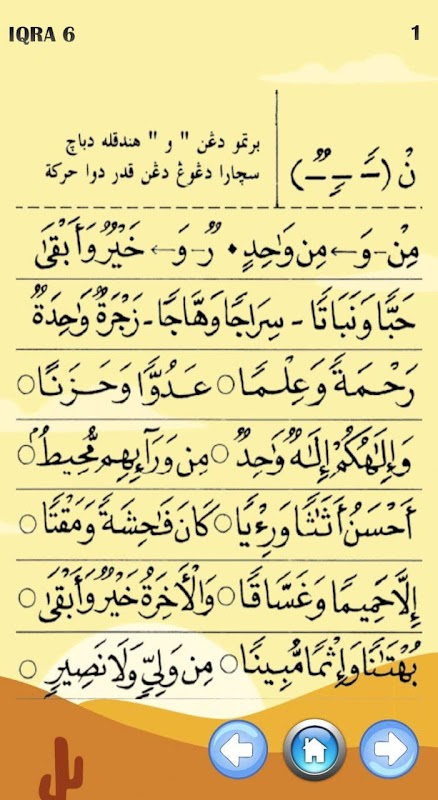 IQRA 6
1
نْ (ـًـ ـٍـ ـٌـ) برتمو دڠن " و " هندقله دباچ
سچارا دڠوڠ دڠن قدر دوا حركة
مِنْ - وَ ← مِن وَاحِدٍ • رٌ - وَ ← خَيْرٌ وَأَبْقَىٰ
حَبًّا وَنَبَاتًا - سِرَاجًا وَهَّاجًا - زَجْرَةٌ وَاحِدَةٌ
رَحْمَةً وَعِلْمًا ○ عَدُوًّا وَحَزَنًا ○
وَإِلَٰهُكُمْ إِلَٰهٌ وَاحِدٌ ○ مِن وَرَآئِهِم مُّحِيطٌ ○
أَحْسَنُ أَثَاثًا وَرِءْيًا ○ كَانَ فَاحِشَةً وَمَقْتًا ○
إِلَّا حَمِيمًا وَغَسَّاقًا ○ وَالْآخِرَةُ خَيْرٌ وَأَبْقَىٰ ○
بُهْتَانًا وَإِثْمًا مُّبِينًا ○ مِن وَلِيٍّ وَلَا نَصِيرٍ ○